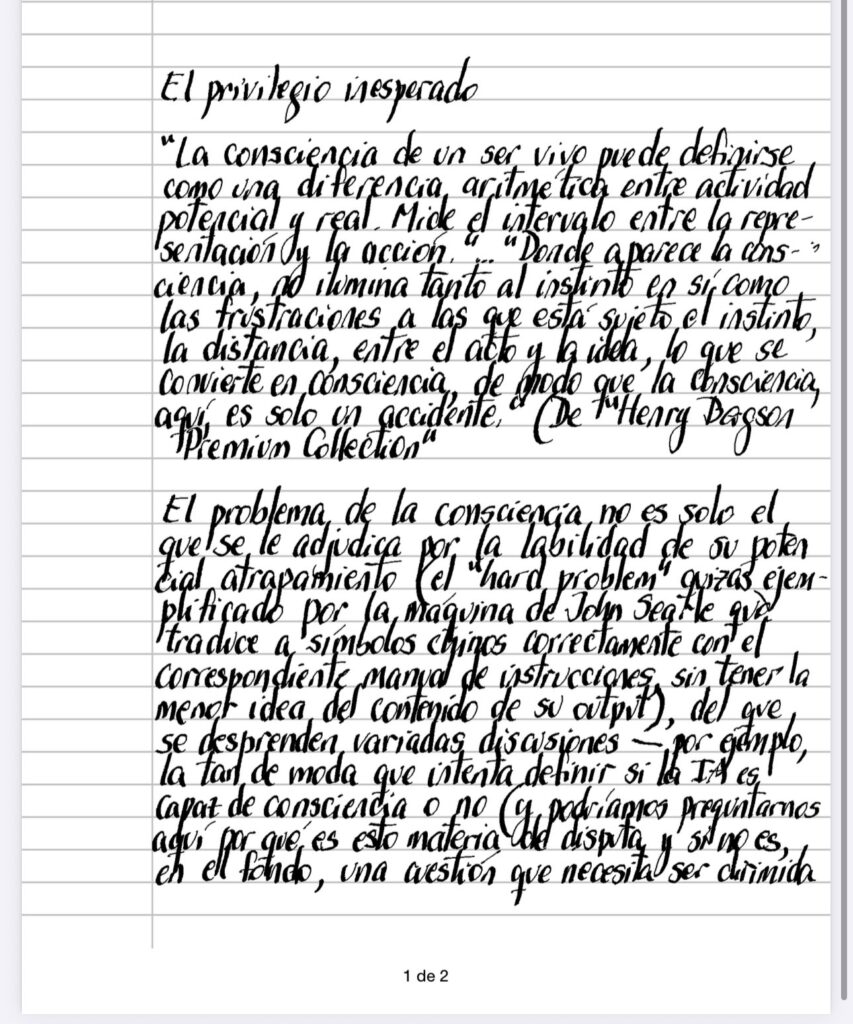 El privilegio inesperado
"La consciencia de un ser vivo puede definirse
como una diferencia aritmética entre actividad
potencial y real. Mide el intervalo entre la repre-
sentación y la acción."... "Donde aparece la cons-
ciencia, no ilumina tanto al instinto en sí como
las frustraciones a las que está sujeto el instinto,
la distancia, entre el acto y la idea, lo que se
convierte en consciencia, de modo que la consciencia,
aquí, es solo un accidente." (De "Henry Bergson
Premium Collection"
El problema de la consciencia no es solo el
que se le adjudica por la labilidad de su poten
cial atrapamiento (el "hard problem" quizás ejem-
plificado por la máquina de John Searle que
traduce a símbolos chinos correctamente con el
correspondiente manual de instrucciones, sin tener la
menor idea del contenido de su output), del que
se desprenden variadas discusiones — por ejemplo,
la tan de moda que intenta definir si la IA es
capaz de consciencia o no (y podríamos preguntarnos
aquí por qué es esto materia de disputa y si no es,
en el fondo, una cuestión que necesita ser dirimida
1 de 2